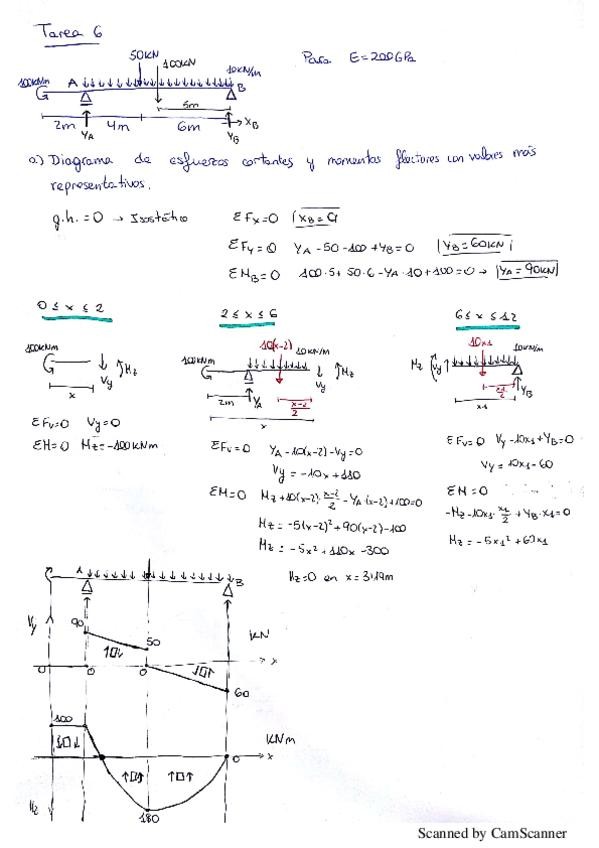 Tarea 6
Para E=200GPa
50KN
100KN
100KNm A 10KN/m B
5m
2m 4m 6m XB
YA YB
a) Diagrama de esfuerzos cortantes y momentos flectores con valores más
representativos.
g.h. = 0 → Isostático
ΣFx=0 XB=0
ΣFy=0 YA-50-100+YB=0 YB=60KN
ΣMB=0 100·5+50·6-YA·10+100=0 → YA=90KN
0≤x≤2
100KNm Vy Mz
x
ΣFv=0 Vy=0
ΣM=0 Mz=-100KNm
2≤x≤6
10(x-2)
100KNm 10KN/m Mz
Vy
2m YA x-2/2
x
ΣFv=0 YA-10(x-2)-Vy=0
Vy=-10x+110
ΣM=0 Mz+10(x-2)·x-2/2-YA·(x-2)+100=0
Mz=-5(x-2)²+90(x-2)-100
Mz=-5x²+110x-300
Mz=0 en x=3,19m
6≤x≤12
10x1 10KN/m
Mz Vy
x1/2 YB
x1
ΣFv=0 Vy-10x1+YB=0
Vy=10x1-60
ΣM=0
-Mz-10x1·x1/2+YB·x1=0
Mz=-5x1²+60x1
A B
Vy
90
50
KN
0 0 0 x
60
100
KNm
0 x
Mz
180
Scanned by CamScanner